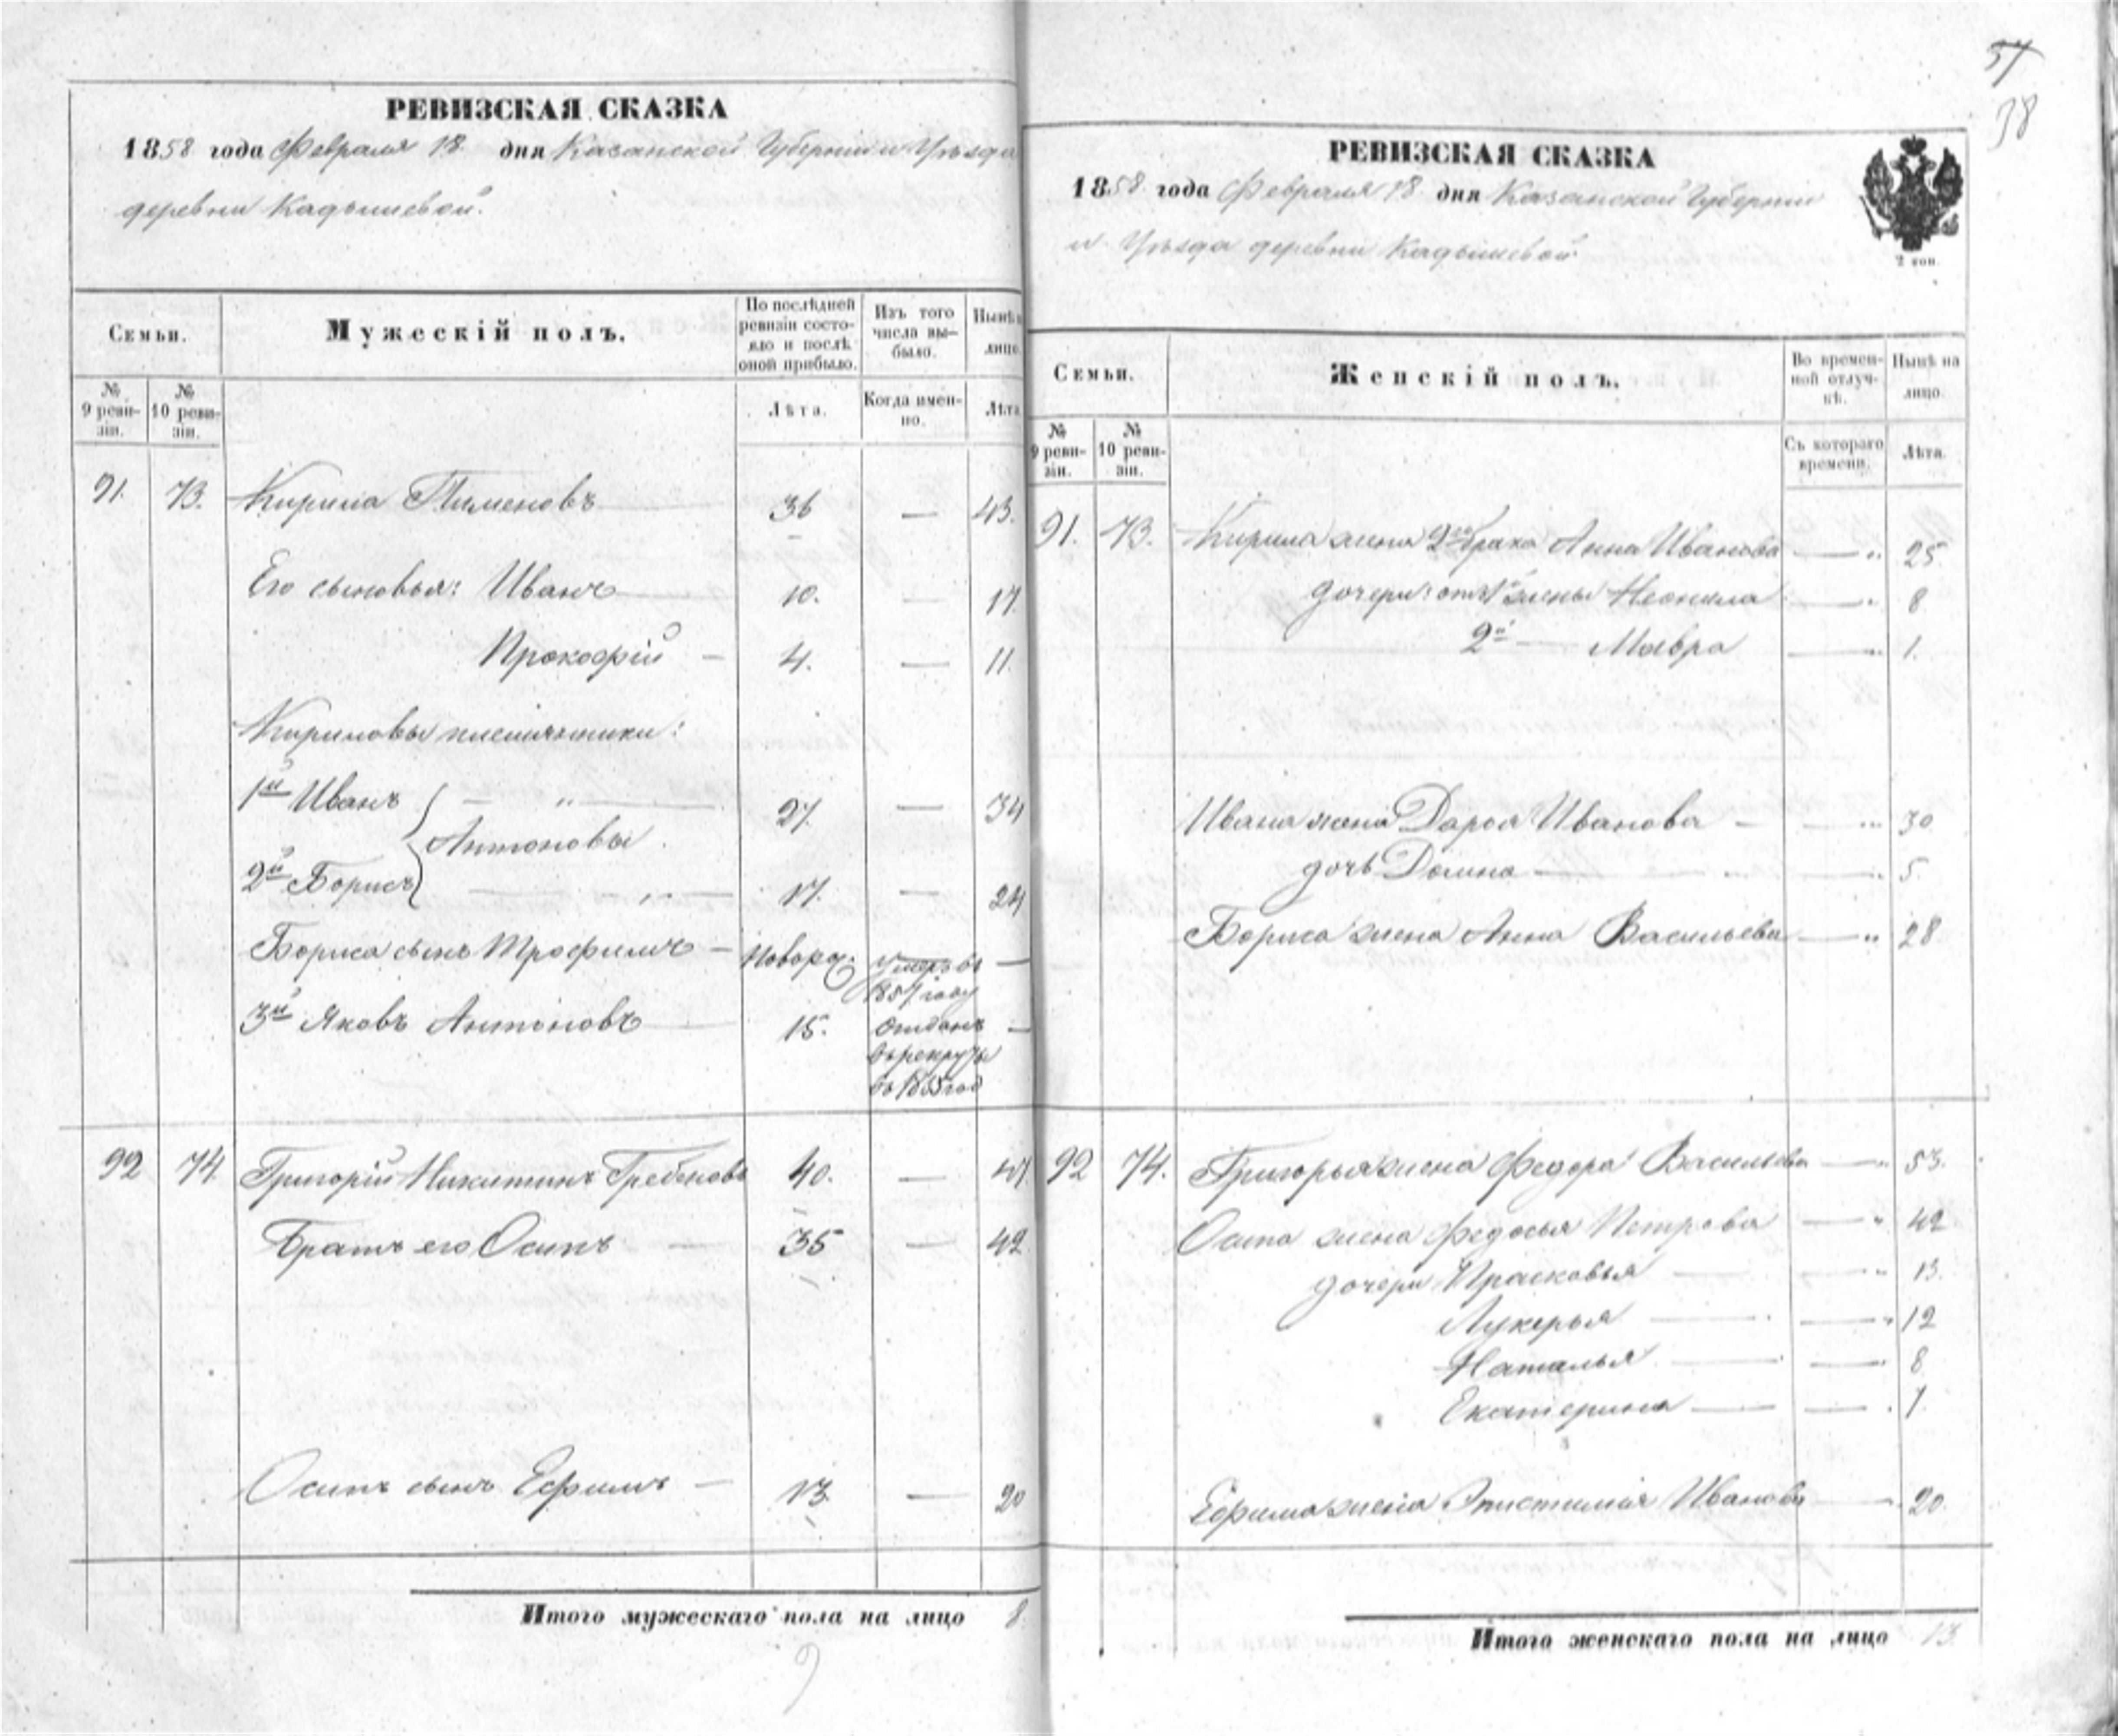 37
38
РЕВИЗСКАЯ СКАЗКА
1858 года Февраля 18 дня Казанской Губернiи и Уѣзда
деревни Кадышевой.
Семьи.
Мужескій полъ.
По послѣдней ревизіи состояло и послѣ оной прибыло.
Изъ того числа выбыло.
Нынѣ на лицо.
№ 9 ревизіи.
№ 10 ревизіи.
Лѣта.
Когда именно.
Лѣта
91. 73. Кирила Пименовъ 36 — 43.
Его сыновья: Иванъ 10. — 17
Прокофій — 4. — 11.
Кириловы племянники:
1й Иванъ — " — 27. — 34
Антоновы.
2й Борисъ — " — 17. — 24
Бориса сынъ Трофимъ — новорож. умеръ въ —
1857 году
3й Яковъ Антоновъ 15. отданъ —
въ рекруты
въ 1855 год
92 74. Григорій Никитинъ Гребеновъ 40. — 47.
Братъ его Осипъ — 35 — 42
Осипъ сынъ Ефимъ — 13 — 20
Итого мужескаго пола на лицо 8.
9
РЕВИЗСКАЯ СКАЗКА
1858 года Февраля 18 дня Казанской Губернiи
и Уѣзда деревни Кадышевой
2 коп.
Семьи.
Женскій полъ.
Во временной отлучкѣ.
Нынѣ на лицо.
№ 9 ревизіи.
№ 10 ревизіи.
Съ котораго времени.
Лѣта.
91. 73. Кирила жена 2го брака Анна Иванова — " 25
дочери: отъ 1й жены Неонила — " 8
2й — Мавра — " 1.
Ивана жена Дарья Иванова — — " 30
дочь Домна — — " 5
Бориса жена Анна Васильева — " 28
92 74. Григорья жена Федора Васильева — " 53.
Осипа жена Федосья Петрова — " 42
дочери Прасковья — — " 13.
Лукерья — — " 12
Наталья — — " 8
Екатерина — — " 1.
Ефима жена Эпистимія Иванова — " 20
Итого женскаго пола на лицо 13.